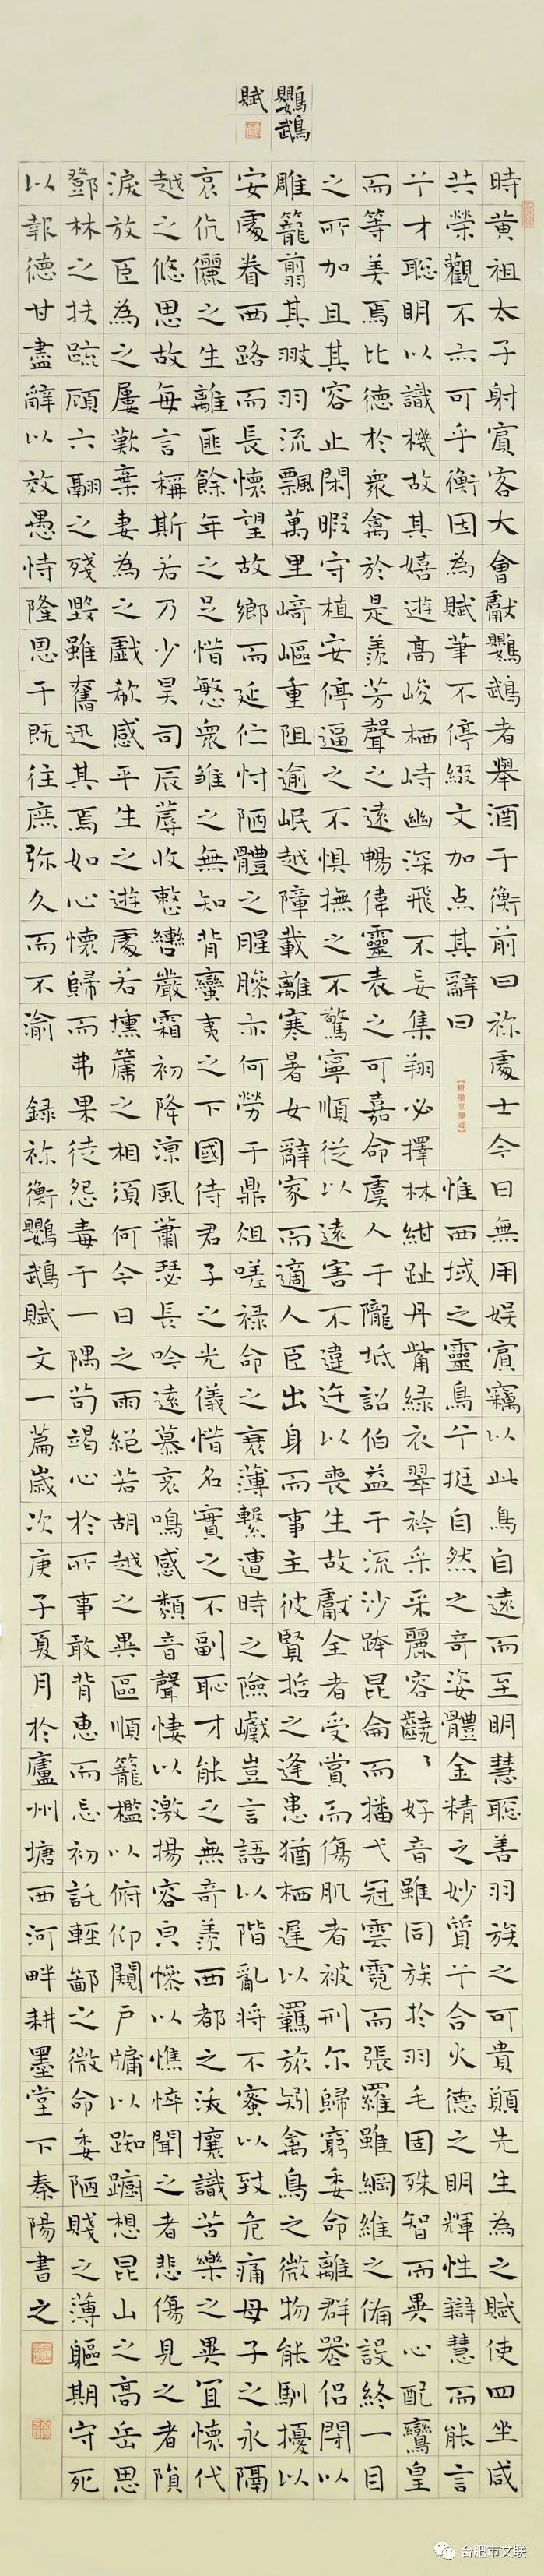 鸚鵡
賦
時黄祖太子射賓客大會獻鸚鵡者舉酒于衡前曰祢處士今日無用娱賓竊以此鳥自遠而至明慧聡善羽族之可貴願先生為之賦使四坐咸
共榮觀不亦可乎衡因為賦筆不停綴文加点其辭曰
【耕墨堂墨迹】
惟西域之靈鳥兮挺自然之奇姿體金精之妙質兮合火德之明輝性辯慧而能言
兮才聡明以識機故其嬉遊高峻栖峙幽深飛不妄集翔必擇林紺趾丹觜緑衣翠衿采采麗容〻好音雖同族於羽毛固殊智而異心配鸞皇
而等美焉比德於衆禽於是羨芳聲之遠暢偉靈表之可嘉命虞人于隴坻詔伯益于流沙跨昆侖而播弋冠雲霓而張羅雖綱維之備設終一目
之所加且其容止閑暇守植安停逼之不惧撫之不驚寧順従以遠害不違迕以喪生故獻全者受賞而傷肌者被刑尔歸窮委命離群喪侣閉以
雕籠翦其翅羽流飄萬里崎嶇重阻逾岷越障載離寒暑女辭家而適人臣出身而事主彼賢哲之逢患猶栖遲以羈旅矧禽鳥之微物能馴擾以
安處眷西路而長懷望故鄉而延伫忖陋體之腥臊亦何勞于鼎俎嗟禄命之衰薄繄遭時之險巇豈言語以階亂将不蜜以致危痛母子之永隔
哀伉儷之生離匪餘年之足惜慜衆雏之無知背蠻夷之下國侍君子之光儀惜名實之不副恥才能之無奇羨西都之沃壤識苦樂之異宜懷代
越之悠思故每言稱斯若乃少昊司辰蓐收整轡嚴霜初降涼風蕭瑟長吟遠慕哀鳴感類音聲悽以激揚容皃惨以憔悴聞之者悲傷見之者隕
淚放臣為之屢歎棄妻為之戲欷感平生之遊處若壎篪之相須何今日之雨絶若胡越之異區順籠檻以俯仰闚戸牖以踟躕想昆山之高岳思
鄧林之扶疏顧六翮之殘毁雖奮迅其焉如心懷歸而弗果徒怨毒于一隅苟竭心於所事敢背惠而忘初託輕鄙之微命委陋賤之薄軀期守死
以報德甘盡辭以效愚恃隆恩于既往庶弥久而不渝
録祢衡鸚鵡賦文一篇歲次庚子夏月於廬州塘西河畔耕墨堂下秦陽書之
合肥市文联